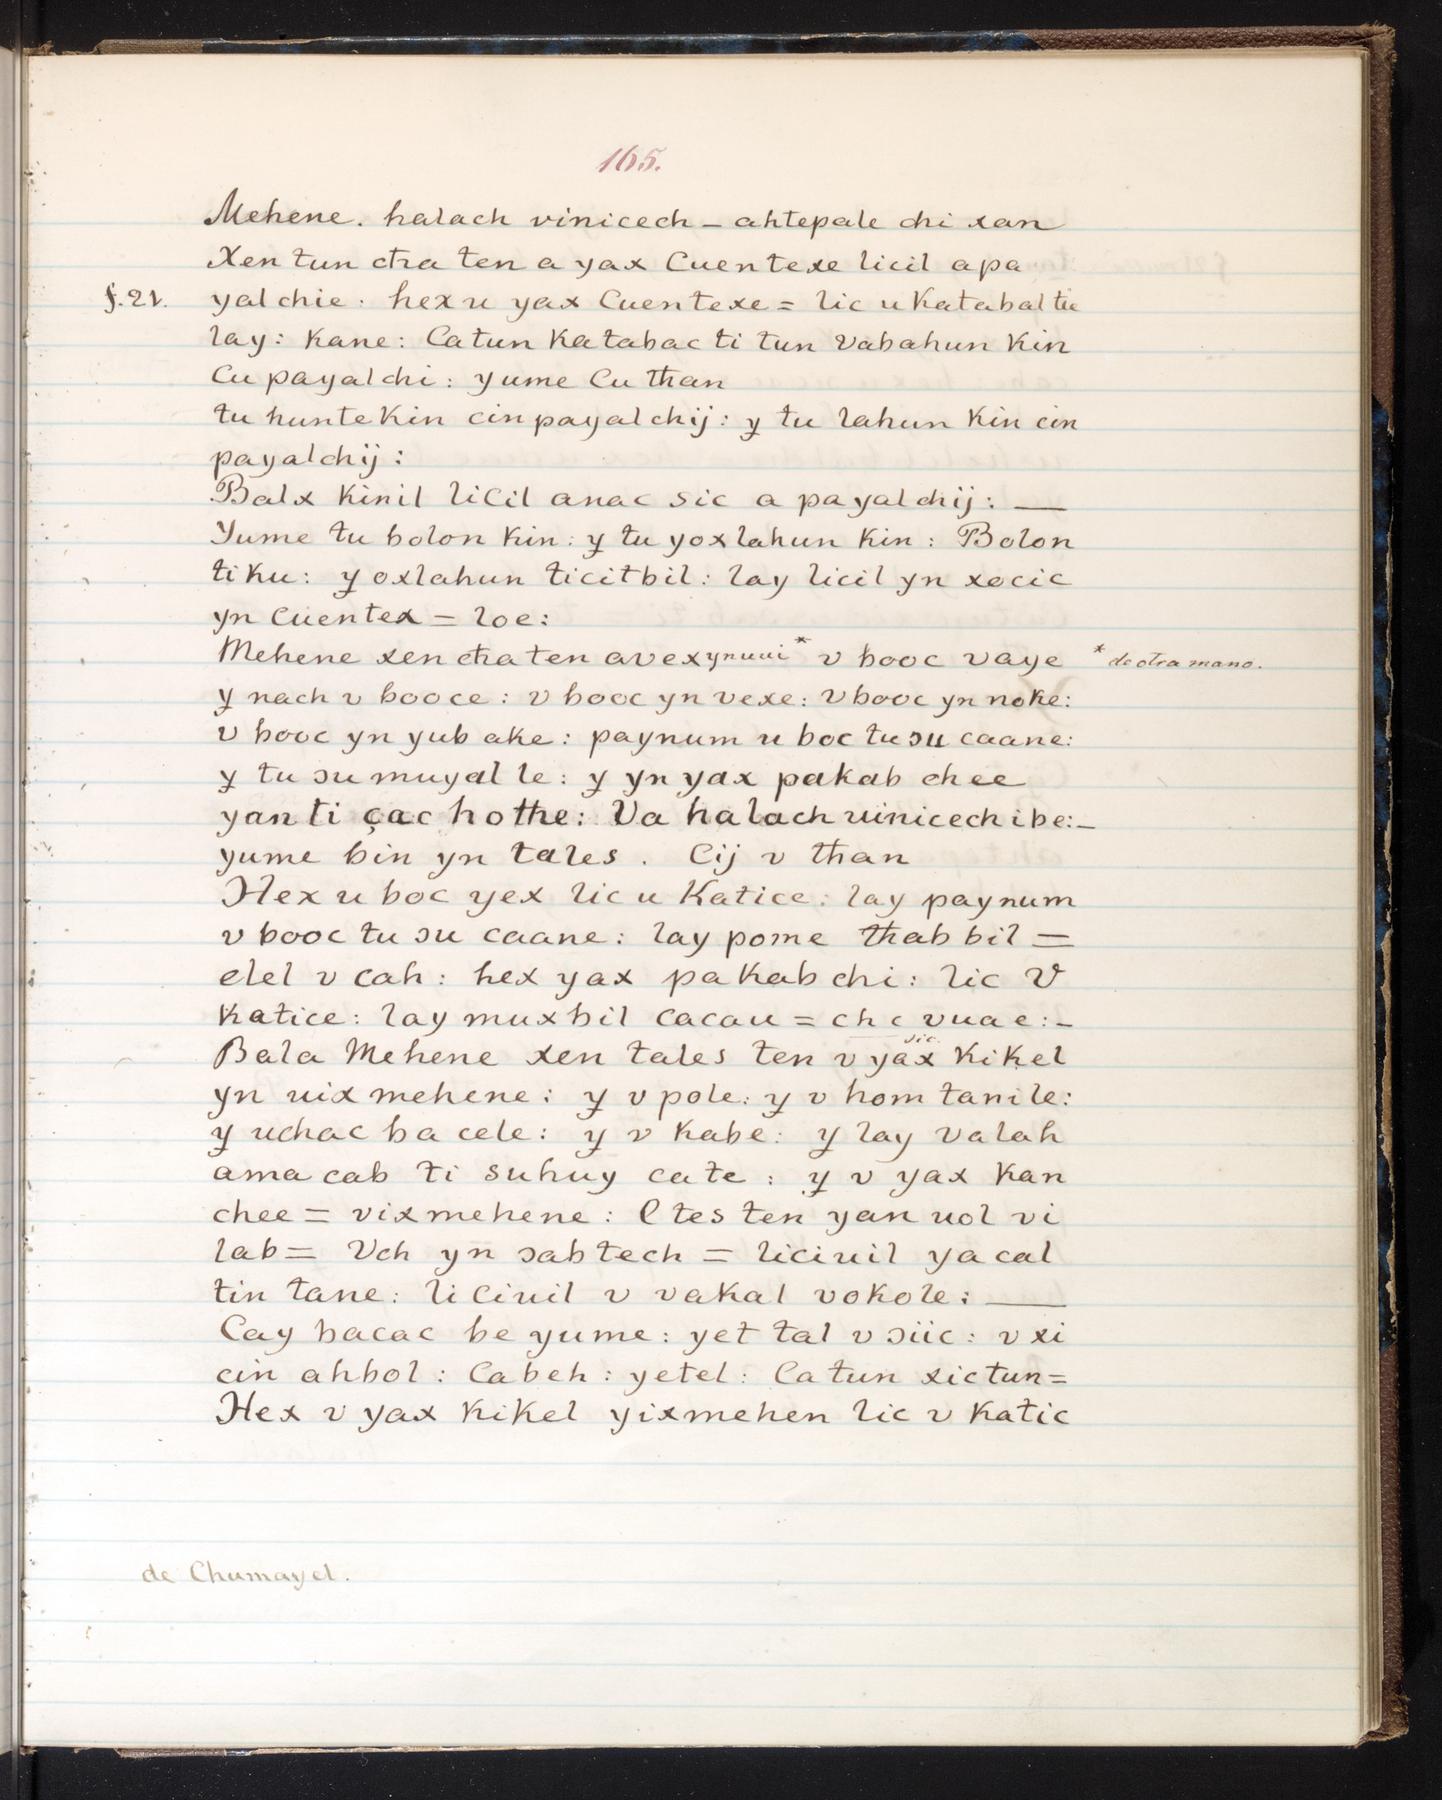 165.
Mehene. halach vinicech – ahtepale chi xan
Xen tun cħa ten a yax Cuentexe licil a pa
f. 21. yal chie: hex u yax Cuentexe = lic u Katabal tu
lay: Kane: Catun Katabac ti tun vabahun Kin
Cu payal chi: yume Cu than
tu hunte Kin cin payal chij: y tu lahun Kin cin
payalchij:
Balx Kinil licil anac sic a payal chij: —
Yume tu bolon Kin: y tu yoxlahun Kin: Bolon
ti ku: y oxlahun ticitbil: lay licil yn xocic
yn Cuentex = loe:
Mehene xen cħa ten avex ynuui * v booc vaye * de otra mano.
y nach v booce: v booc yn vexe: v booc yn noke:
v booc yn yub ake: paynum u boc tu ɔu caane:
y tu ɔu muyal le: y yn yax pakab chee
yan ti çac hothe: Va halach uinicech i be: –
yume bin yn tales. Cij v than
Hex u boc yex lic u Katice: lay paynum
v booc tu ɔu caane: lay pome thab bil =
elel v cah: hex yax pa Kab chi: lic V
Katice: lay muxbil cacau = chc vuae: –
sic
Bala Mehene xen tales ten v yax KiKel
yn uix mehene: y v pole: y v hom tanile:
y uchac ba cele: y v Kabe: y lay valah
ama cab ti suhuy cate: y v yax Kan
chee = vixmehene: Etes ten yan uol vi
lab = Vch yn ɔab tech = liciuil yacal
tin tane: li Ciuil v vakal vokole: —
Cay bacac be yume: yet tal v ɔiic: v xi
cin ahbol: Cabeh: yetel: Catun xictun =
Hex v yax KiKel yixmehen lic v Katic
de Chumayel.